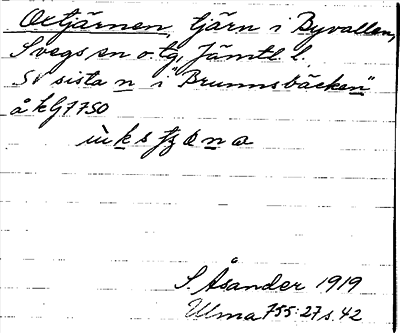 Oxtjärnen, tjärn i Byvallen,
Svegs sn o. tg, Jämtl. l.
SV sista n i "Brunnsbäcken"
å kbl 7750

S. Åsander 1919
Ulma 755:27 s. 42